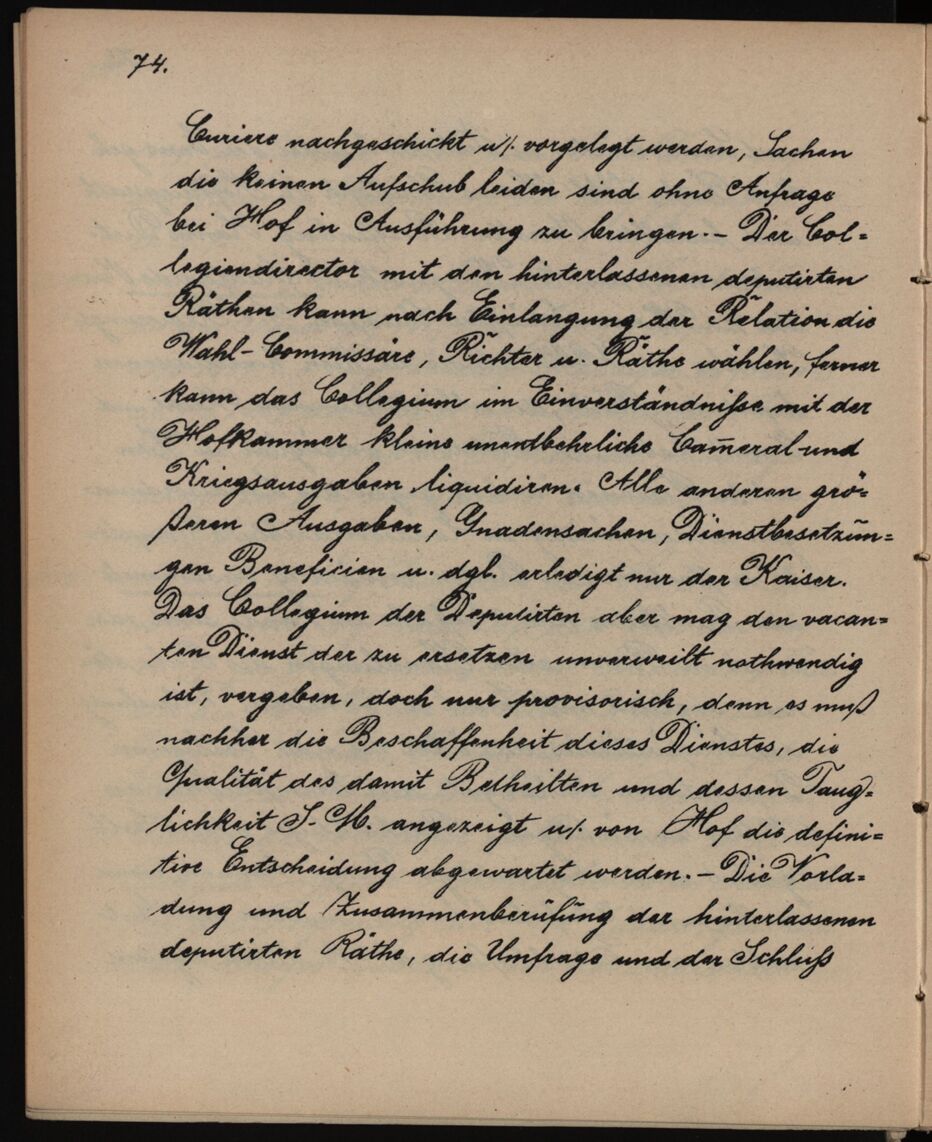 74.
Curiere nachgeschickt u/. vorgelegt werden, Sachen
die keinen Aufschub leiden sind ohne Anfrage
bei Hof in Ausführung zu bringen. – Der Col=
legiendirector mit den hinterlassenen deputirten
Räthen kann nach Einlangung der Relation die
Wahl-Commissäre, Richter u. Räthe wählen, ferner
kann das Collegium im Einverständniße mit der
Hofkammer kleine unentbehrliche Cam̅eral-und
Kriegsausgaben liquidiren. Alle anderen grö=
ßeren Ausgaben, Gnadensachen, Dienstbesetzun=
gen Beneficien u. dgl. erledigt nur der Kaiser.
Das Collegium der Deputirten aber mag den vacan=
ten Dienst der zu ersetzen unverweilt nothwendig
ist, vergeben, doch nur provisorisch, denn es muß
nachher die Beschaffenheit dieses Dienstes, die
Qualität des damit Betheilten und dessen Taug=
lichkeit S. M. angezeigt u/. von Hof die defini=
tive Entscheidung abgewartet werden. – Die Vorla=
dung und Zusammenberufung der hinterlassenen
deputirten Räthe, die Umfrage und der Schluß